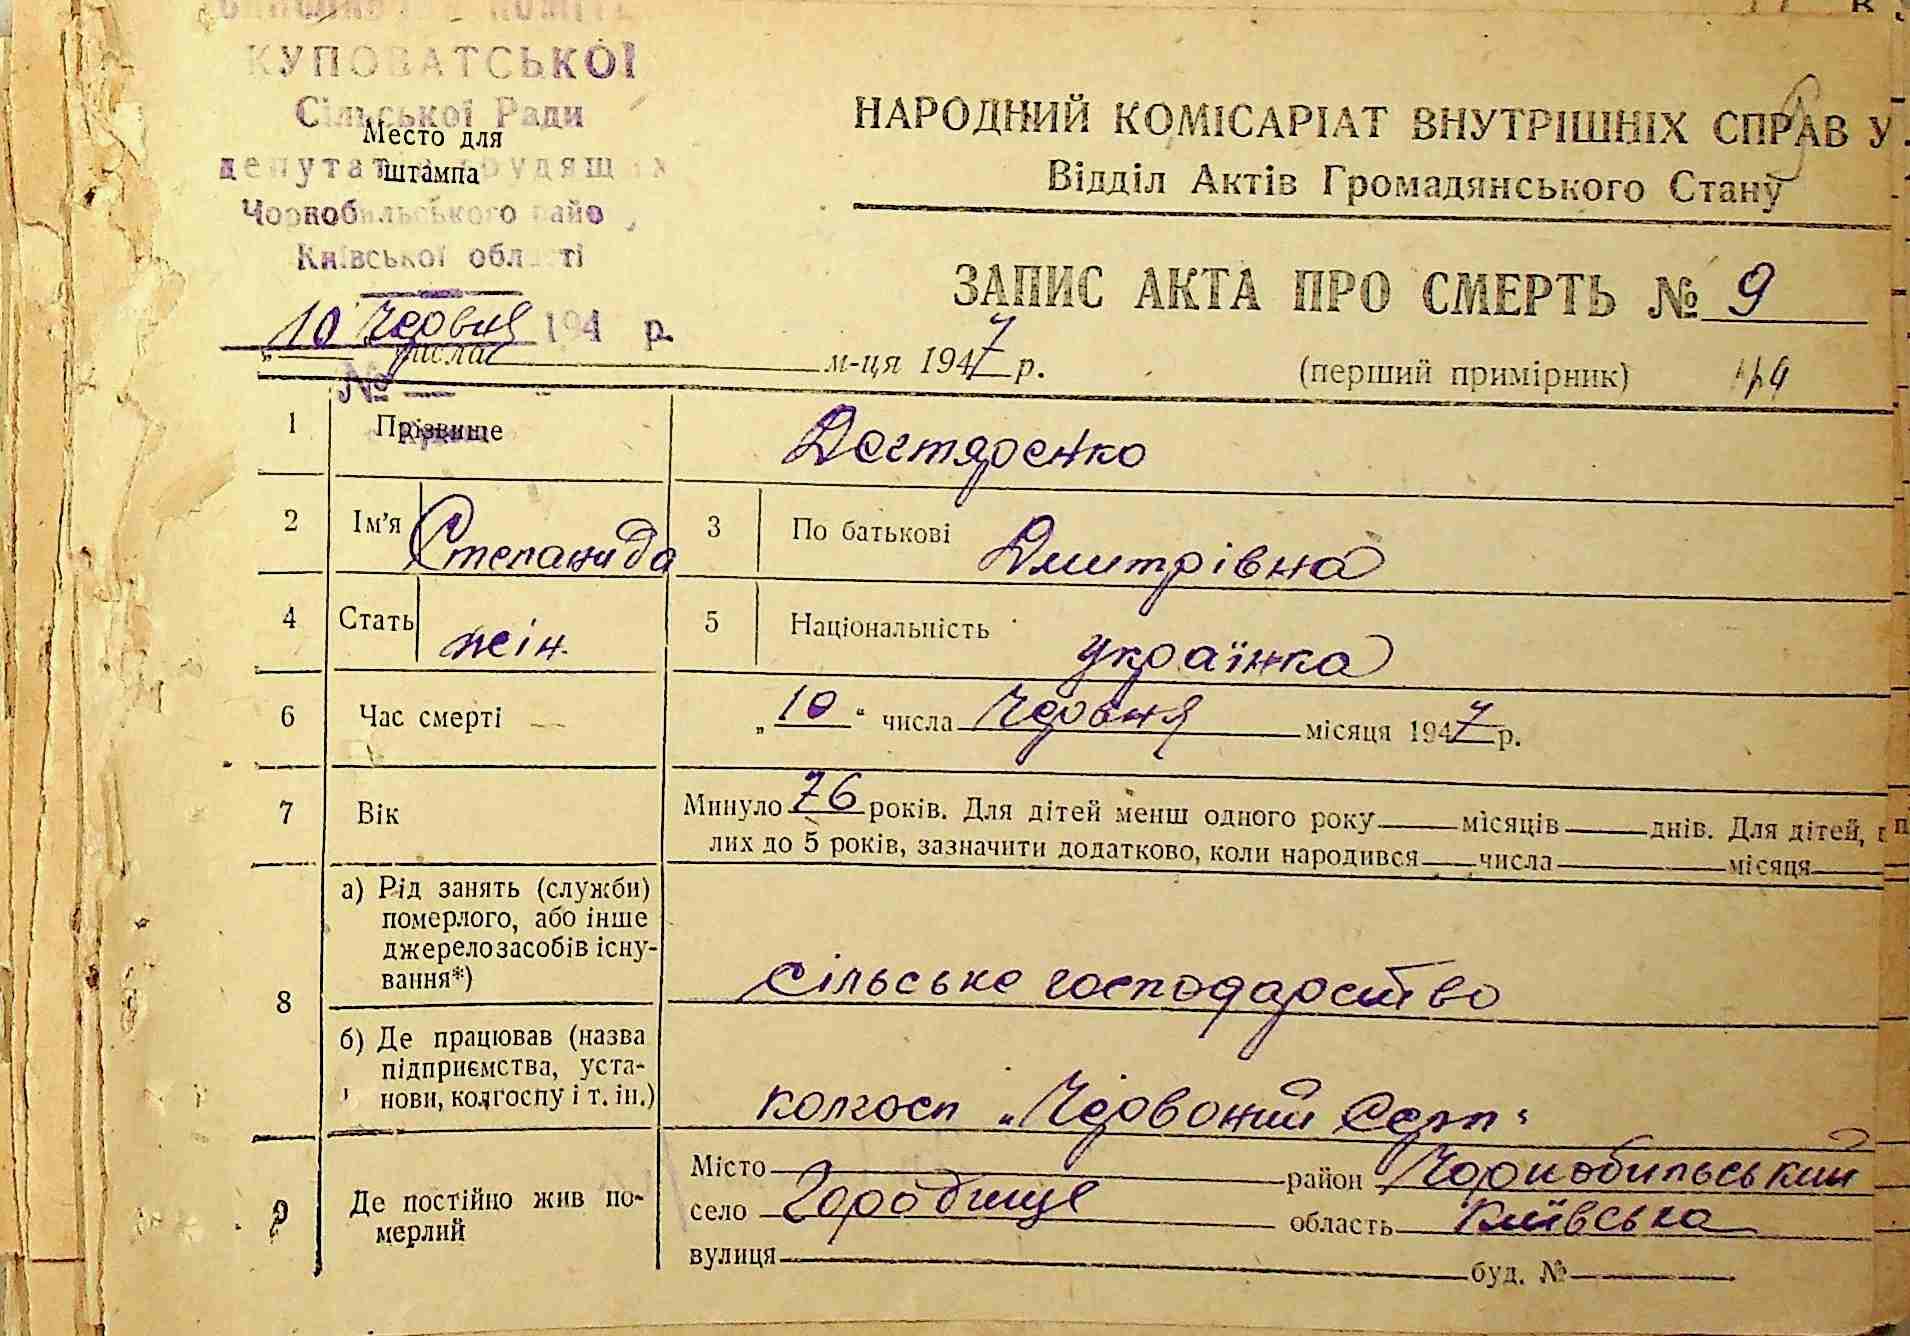 КУПОВАТСЬКОЇ
Сільської Ради
Место для
штампа
депутатів трудящих
Чорнобильського
Київської області
10 Червня 194 р.
№
НАРОДНИЙ КОМІСАРІАТ ВНУТРІШНІХ СПРАВ У
Відділ Актів Громадянського Стану
ЗАПИС АКТА ПРО СМЕРТЬ № 9
числа м-ця 1947 р. (перший примірник)
1 Прізвище Дегтяренко
2 Ім'я Степанида 3 По батькові Дмитрівна
4 Стать жін. 5 Національність українка
6 Час смерті „10“ числа Червня місяця 1947 р.
7 Вік Минуло 76 років. Для дітей менш одного року місяців днів. Для дітей,
лих до 5 років, зазначити додатково, коли народився числа місяця
8 а) Рід занять (служби)
померлого, або інше
джерело засобів існу-
вання*)
сільське господарство
б) Де працював (назва
підприємства, уста-
нови, колгоспу і т. ін.)
колгосп „Червоний Серп“
9 Де постійно жив по-
мерлий
Місто район Чорнобильський
село Городище область Київська
вулиця буд. №